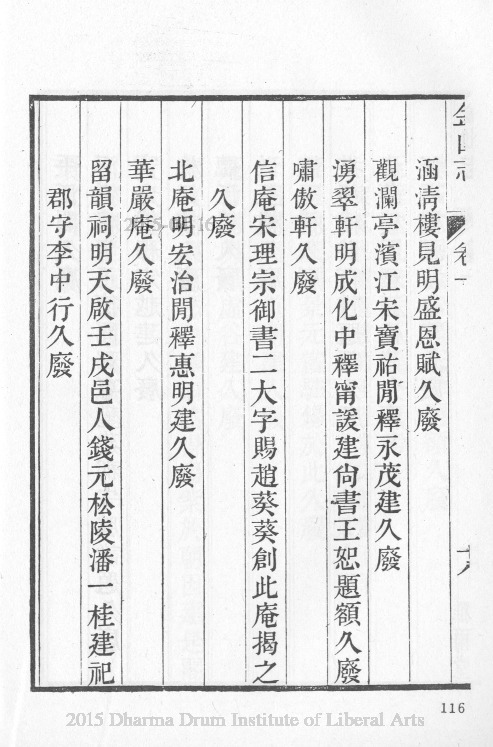 金山志 卷一 十八
涵淸樓見明盛恩賦久廢
觀瀾亭濱江宋寶祐閒釋永茂建久廢
湧翠軒明成化中釋甯諼建尙書王恕題額久廢
嘯傲軒久廢
信庵宋理宗御書二大字賜趙葵葵創此庵揭之
久廢
北庵明宏治閒釋惠明建久廢
華嚴庵久廢
留韻祠明天啟壬戌邑人錢元松陵潘一桂建祀
郡守李中行久廢
116
2015 Dharma Drum Institute of Liberal Arts